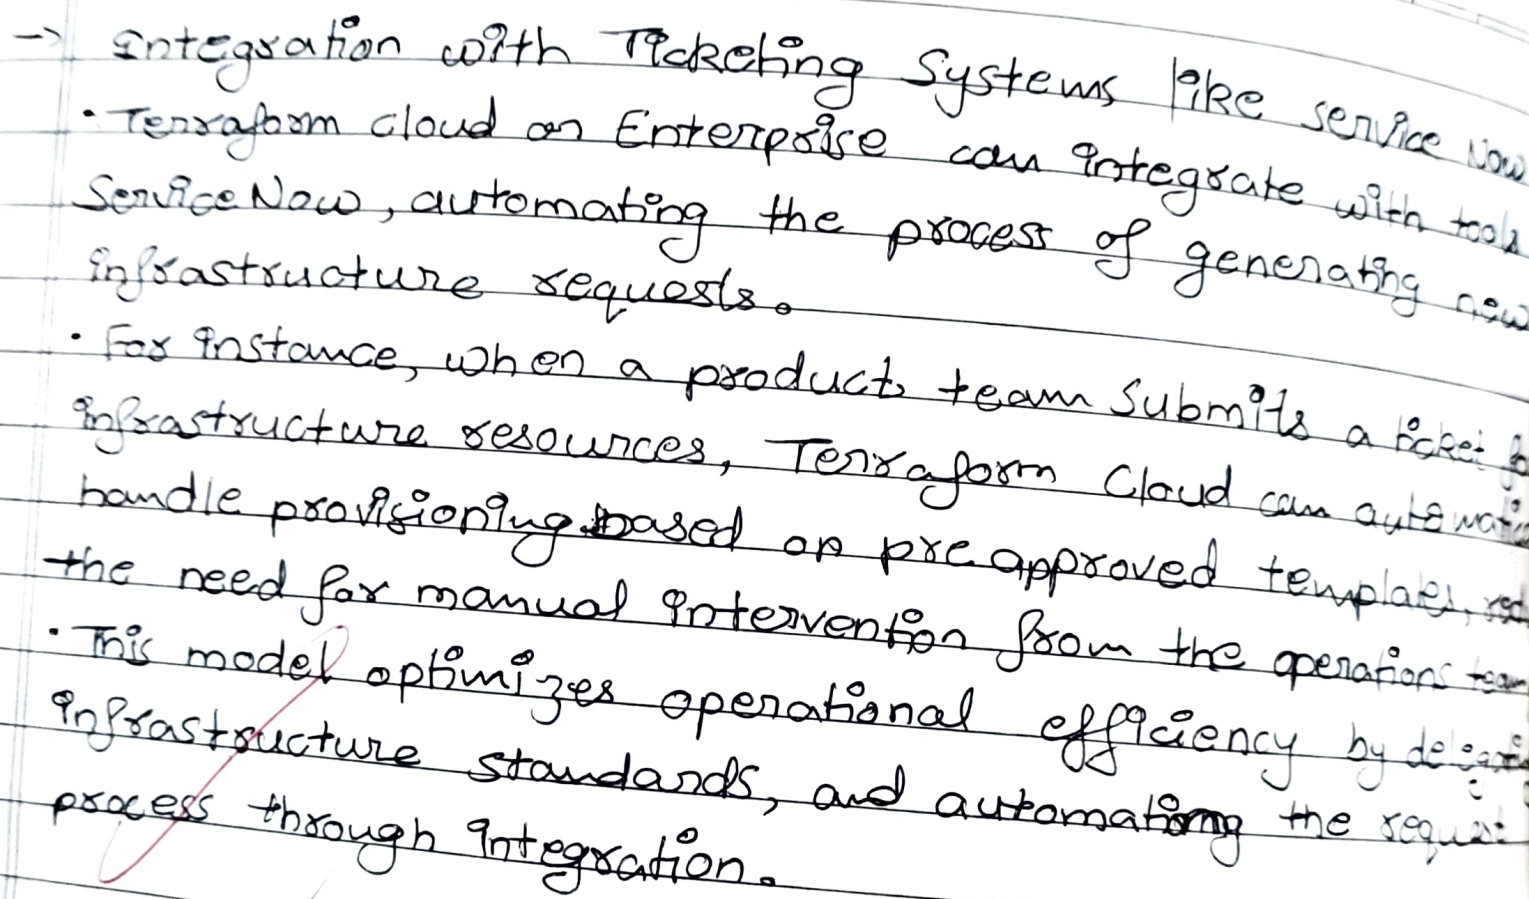 → Integration with Ticketing Systems like service Now
· Terraform cloud on Enterprise can integrate with tools
ServiceNow, automating the process of generating new
infrastructure requests.
· For instance, when a product team submits a ticket
infrastructure resources, Terraform Cloud can
handle provisioning based on pre approved templates,
the need for manual intervention from the operations team
· This model optimizes operational efficiency by
infrastructure standards, and automating the request
process through integration.